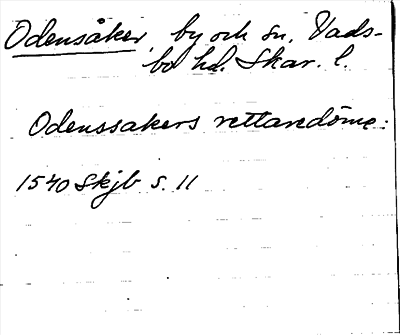 Odensåker, by och sn. Vads-
bo hd. Skar. l.
Odenssakers rettaredöme:
1540 Skjb s. 11